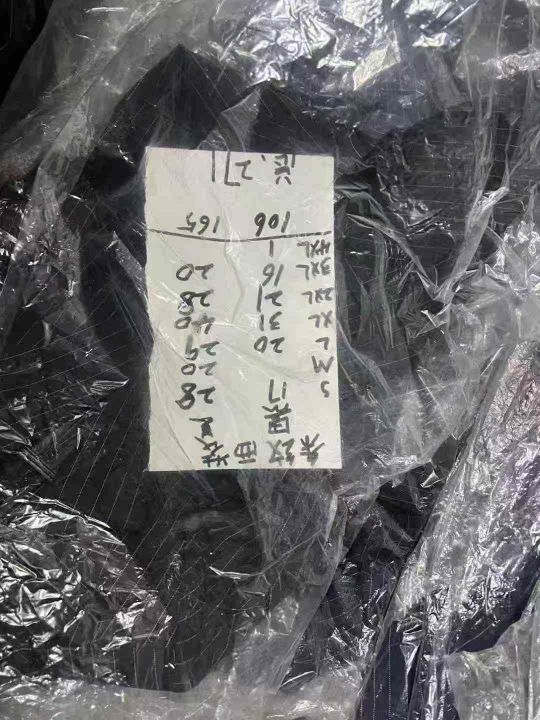 条纹西装
黑
S 17 28
M 20
L 20 29
XL 31 40
2XL 21 28
3XL 16 20
4XL 1
106 165
共.271